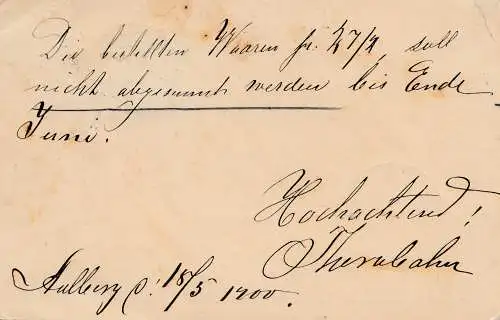 Die bestellten Waaren fr. 27/4 soll
nicht abgesandt werden bis Ende
Juni.
Hochachtend!
Aalborg d. 18/5 1900.